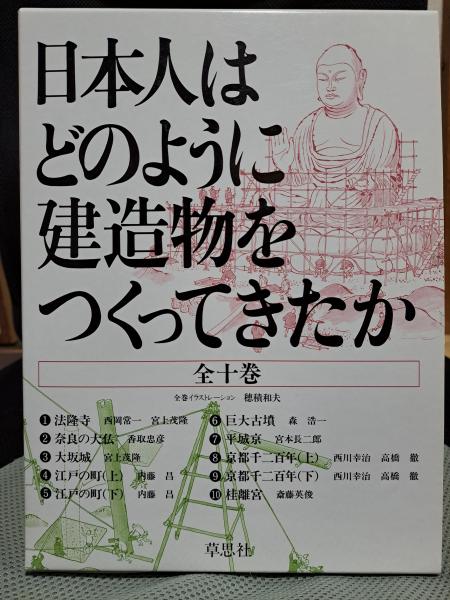 日本人は
どのように
建造物を
つくってきたか
全十巻
全巻イラストレーション 穂積和夫
❶法隆寺 西岡常一 宮上茂隆
❷奈良の大仏 香取忠彦
❸大坂城 宮上茂隆
❹江戸の町(上) 内藤 昌
❺江戸の町(下) 内藤 昌
❻巨大古墳 森 浩一
❼平城京 宮本長二郎
❽京都千二百年(上) 西川幸治 高橋 徹
❾京都千二百年(下) 西川幸治 高橋 徹
❿桂離宮 斎藤英俊
草思社